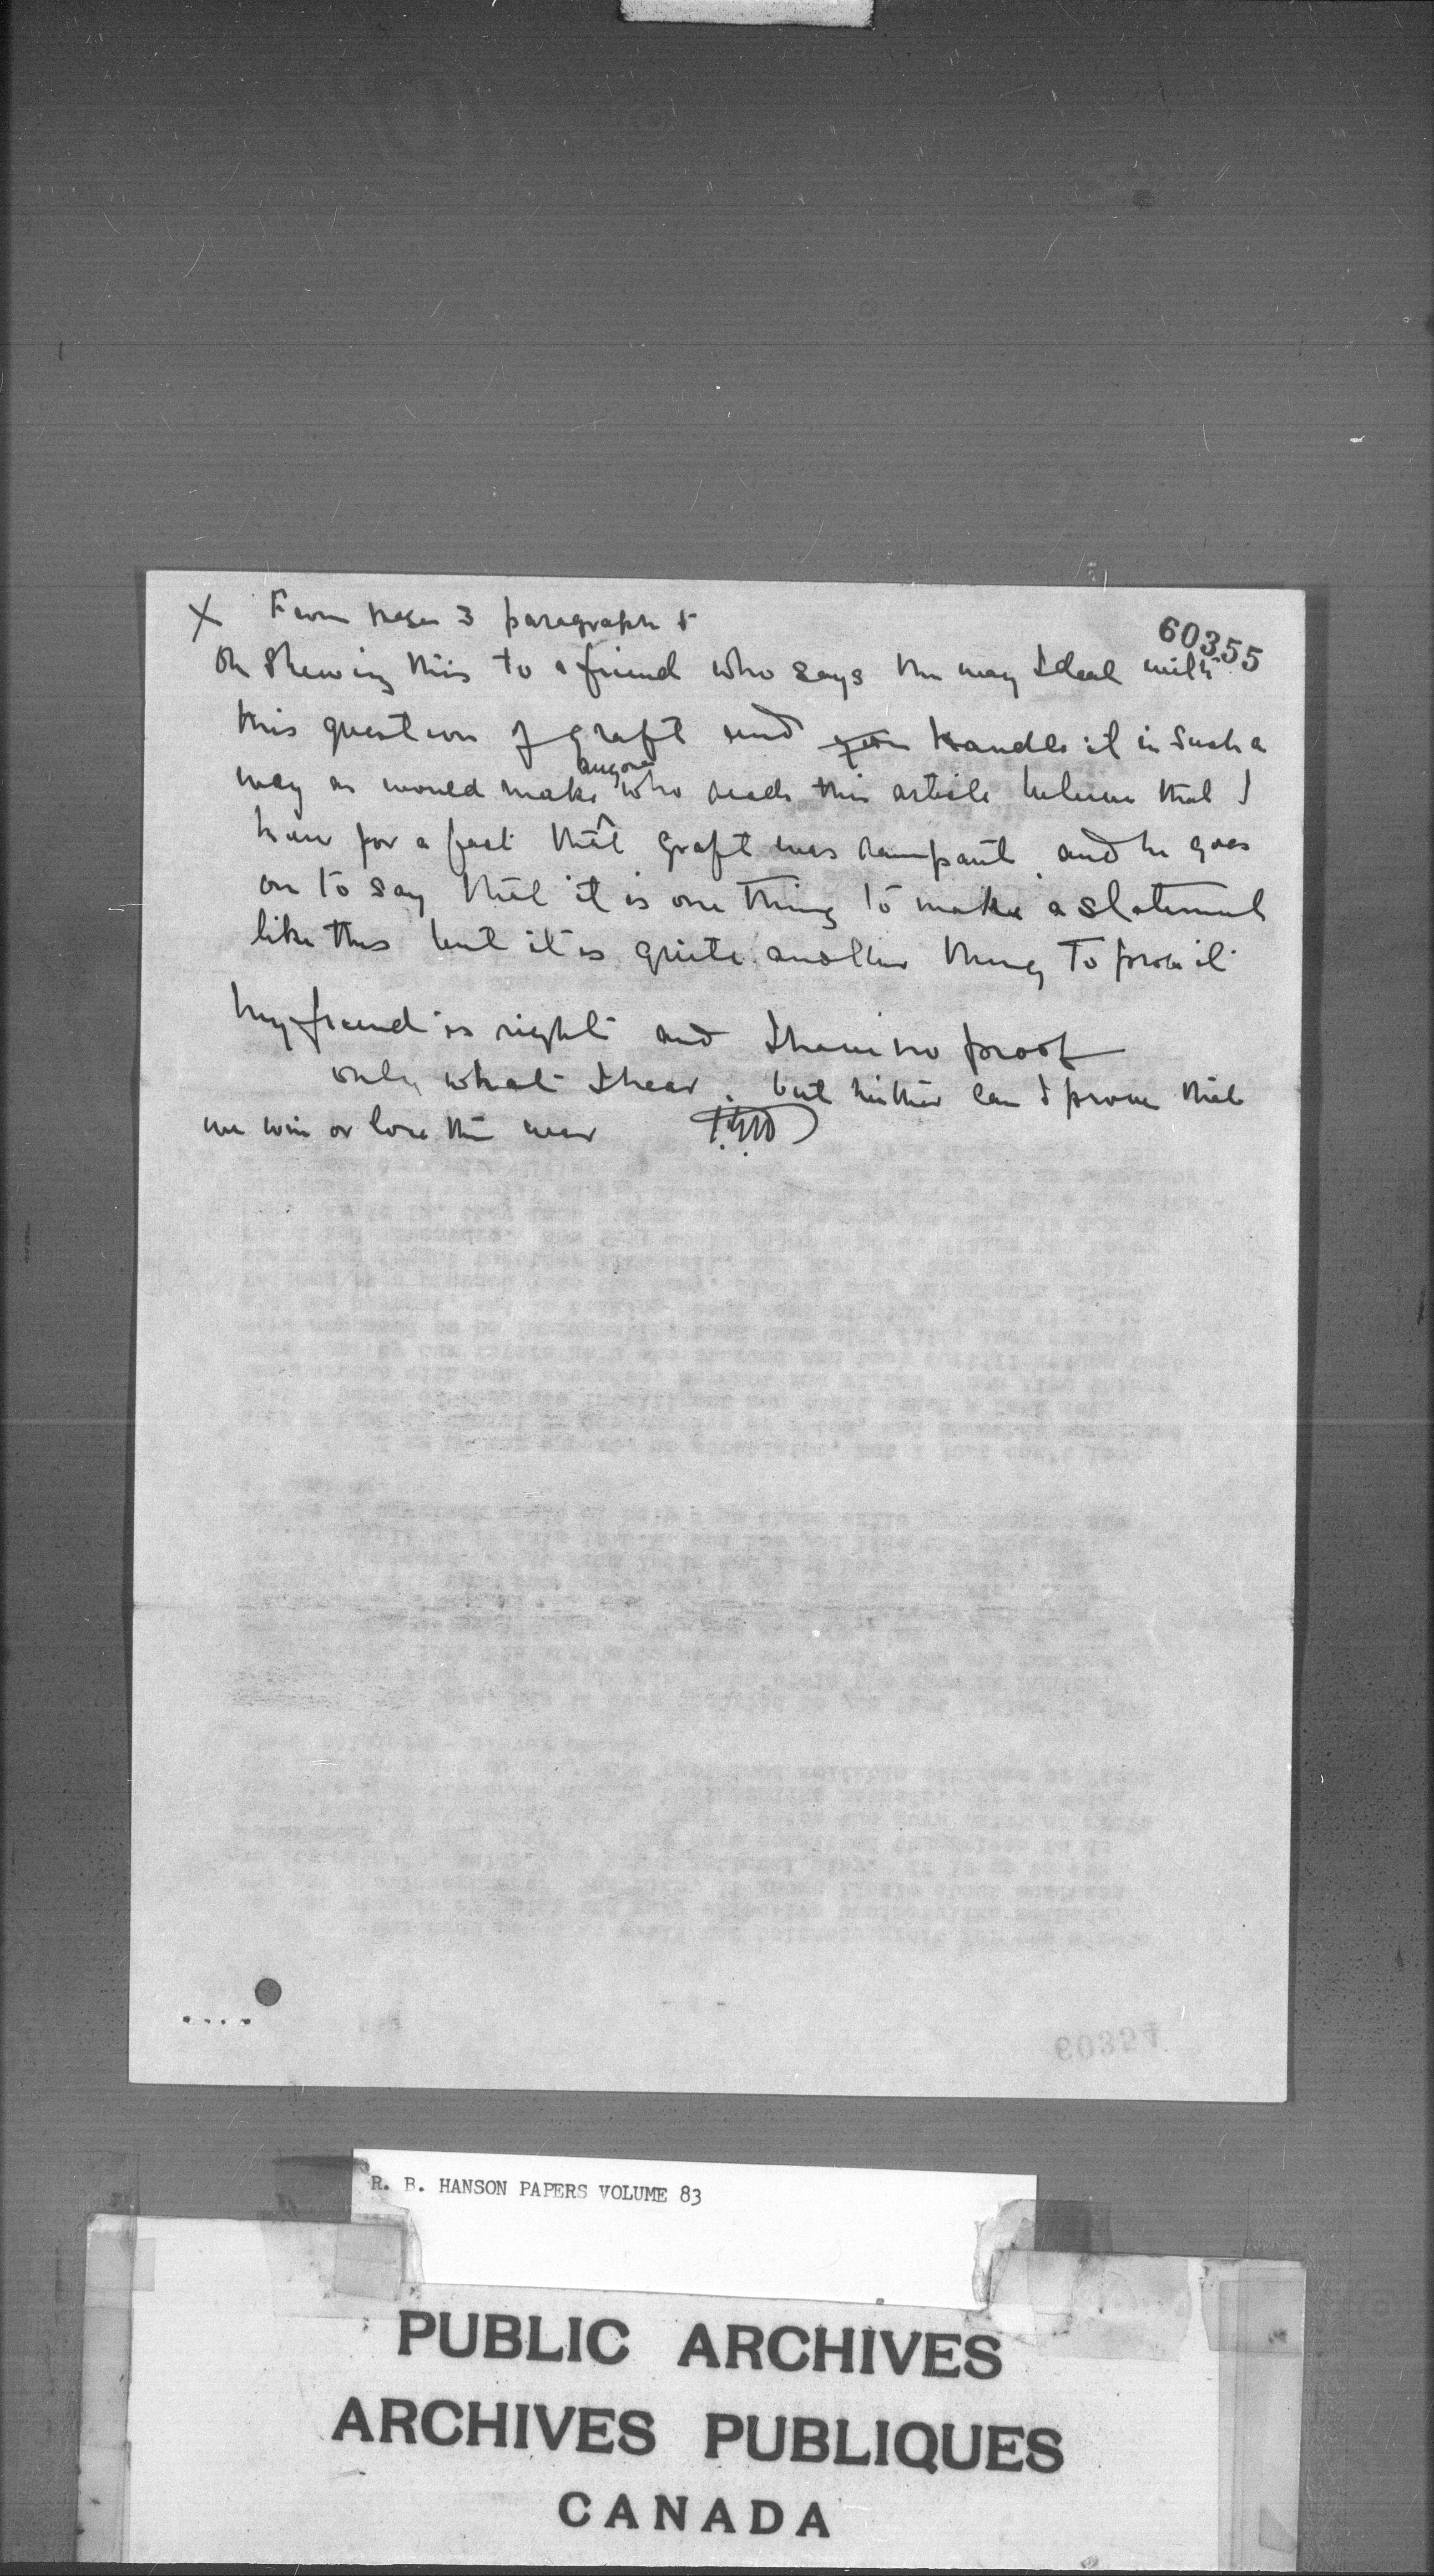 X From page 3 paragraph 5
60355
On Shewing this to a friend who says the way I deal with
this question of graft and handle it in such a
way as would make anyone who reads this article believe that I
knew for a fact that graft was rampant and he goes
on to say that it is one thing to make a statement
like this but it is quite another thing to prove it
My friend is right and I have no proof
only what I hear. but neither can I prove that
we win or lose the war
60354
R. B. HANSON PAPERS VOLUME 83
PUBLIC ARCHIVES
ARCHIVES PUBLIQUES
CANADA